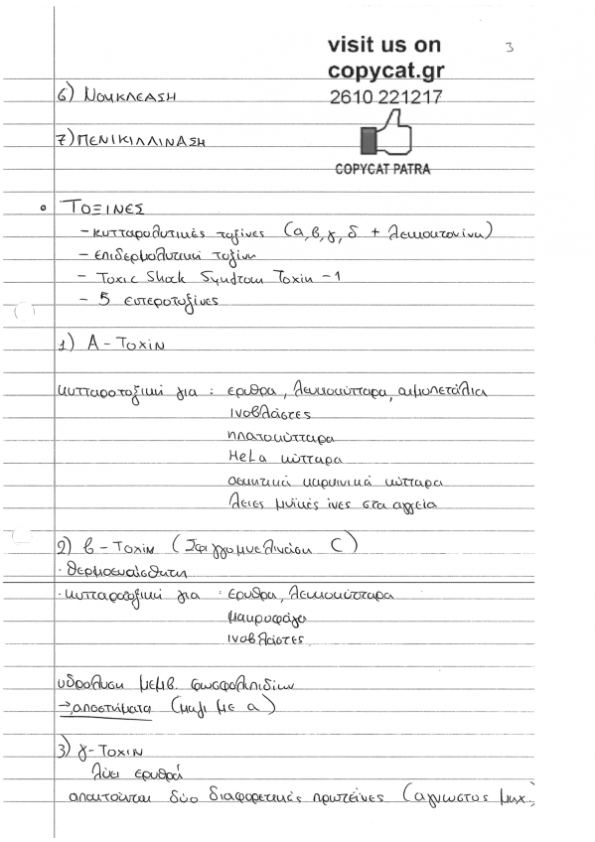 visit us on
copycat.gr
2610 221217
COPYCAT PATRA
3
6) ΝΟΥΚΛΕΑΣΗ
7) ΠΕΝΙΚΙΛΛΙΝΑΣΗ
• ΤΟΞΙΝΕΣ
- κυτταρολυτικές τοξίνες (α, β, γ, δ + λευκοκτονίνη)
- επιδερμολυτική τοξίνη
- Toxic Shock Syndrom Toxin -1
- 5 εντεροτοξίνες
1) Α - Τοxin
κυτταροτοξική για : ερυθρα, λευκοκύτταρα, αιμοπετάλια
ινοβλάστες
ηπατοκύτταρα
HeLa κύτταρα
καρκινικά κύτταρα
λειες μυϊκές ίνες στα αγγεία
2) β - Τοxin (Σφιγγομυελινάση C)
· θερμοευαίσθητη
· κυτταροτοξική για : ερυθρα, λευκοκύτταρα
μακροφάγα
ινοβλάστες
υδρολυση μεμβ. φωσφολιπιδίων
→ αποστήματα (μαζι με α)
3) γ - Τοxin
λύει ερυθρά
απαιτούνται δύο διαφορετικές πρωτεΐνες (αγνωστος μηχ.)